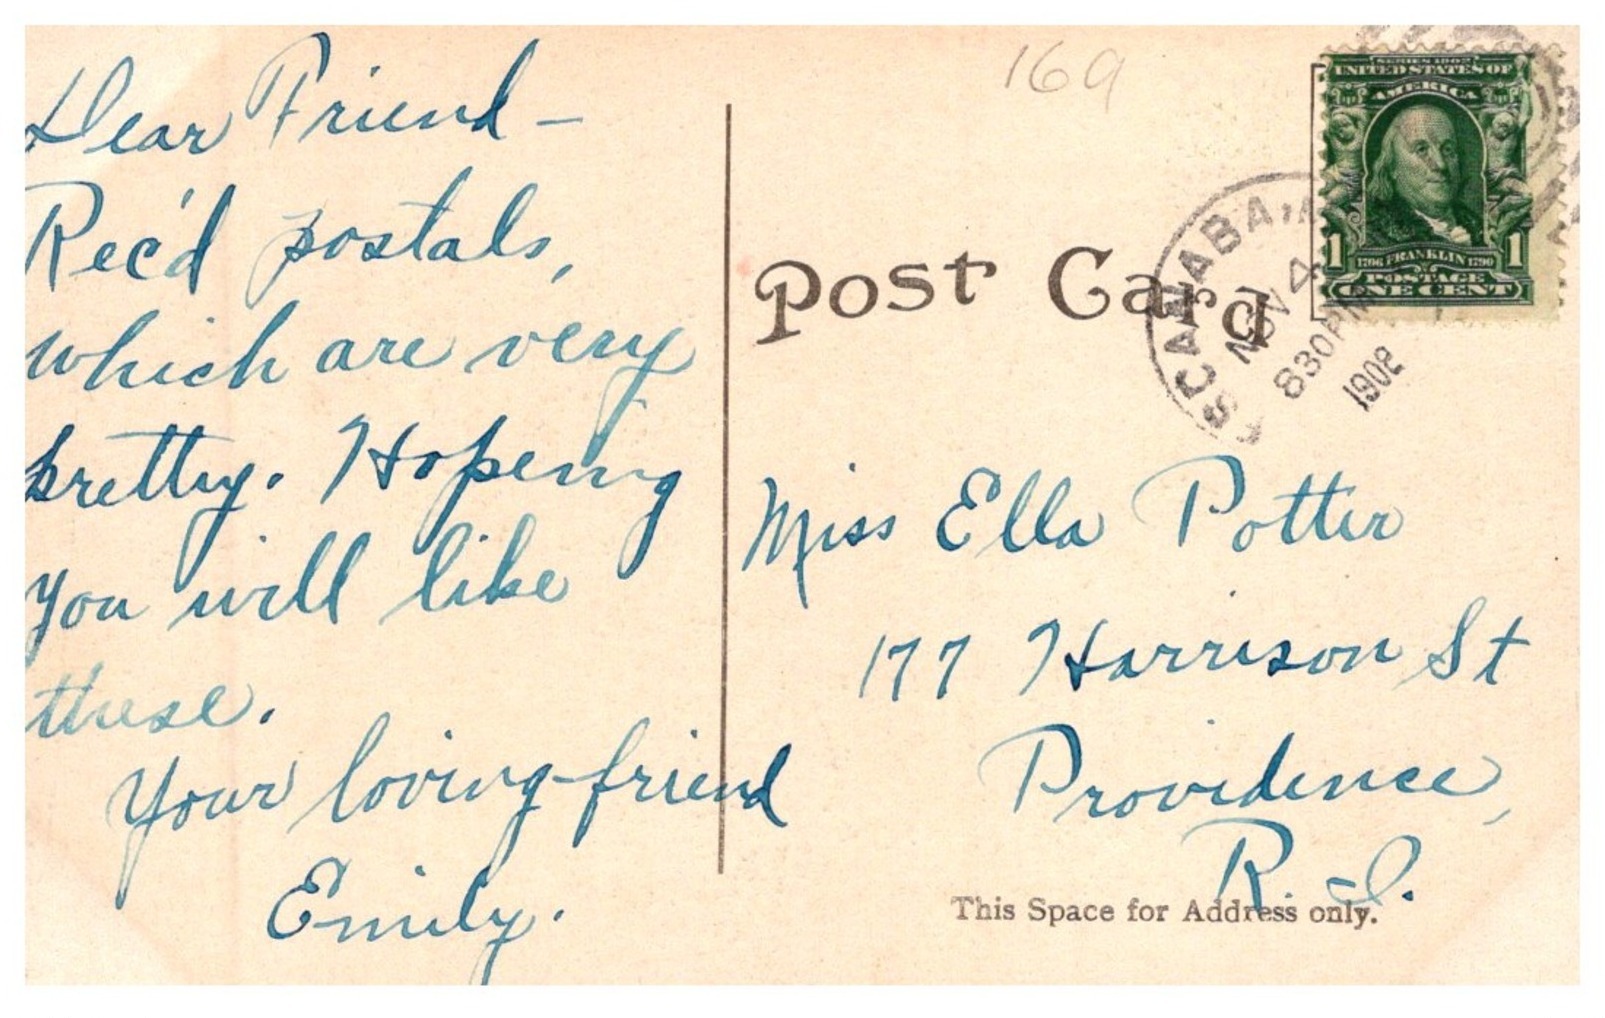 Dear Friend -
Rec'd postals,
which are very
pretty. Hopeing
you will like
these.
Your loving friend
Emily.
169
SERIES 1902
UNITED STATES OF
AMERICA
1 1706 FRANKLIN 1790 1
POSTAGE
ONE CENT
Post Card
ESCANABA, M
NOV 4
830PM
1908
Miss Ella Potter
177 Harrison St
Providence,
R. I.
This Space for Address only.